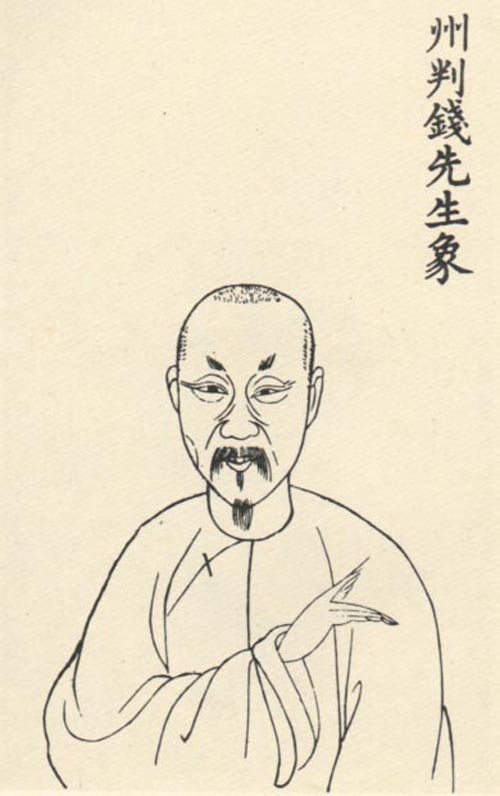 州判錢先生象